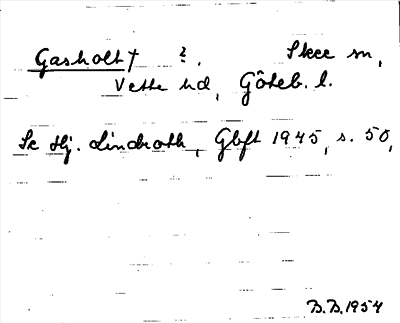 Gasholt † ?. Skee sn,
Vette hd, Göteb. l.
Se Hj. Lindroth, Gbft 1945, s. 50,
B.B. 1954